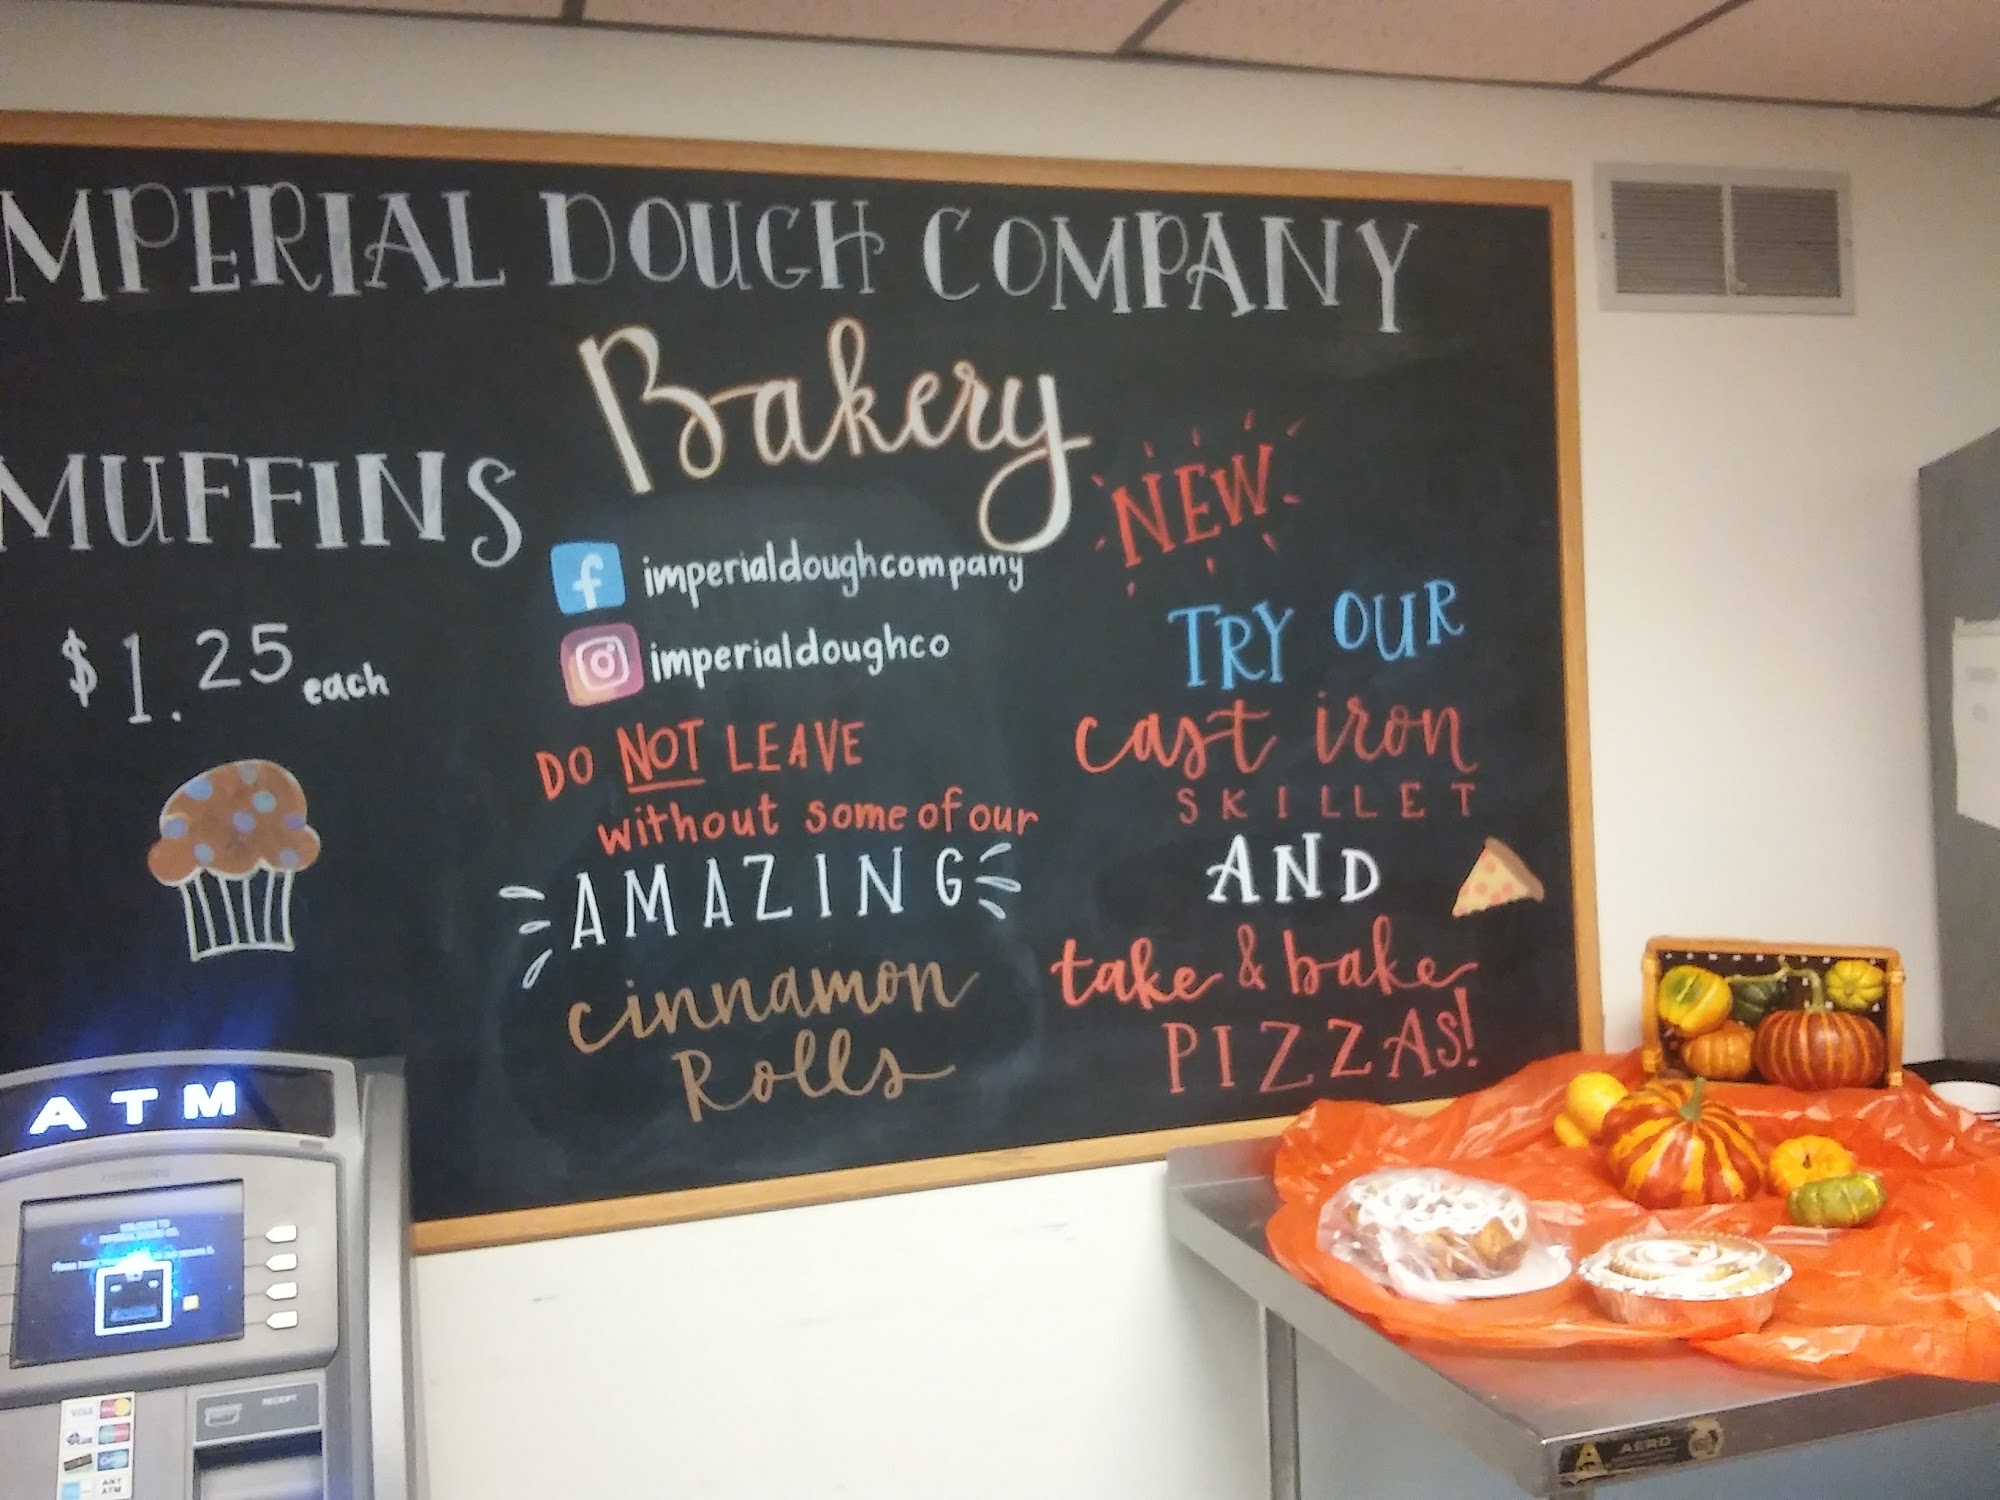 IMPERIAL DOUGH COMPANY
Bakery
MUFFINS
$1.25 each
f imperialdoughcompany
imperialdoughco
DO NOT LEAVE
without some of our
AMAZING
cinnamon
Rolls
NEW
TRY OUR
cast iron
SKILLET
AND
take & bake
PIZZAS!
ATM
RECEIPT
VISA
PLUS
ANY
ATM
A AERO